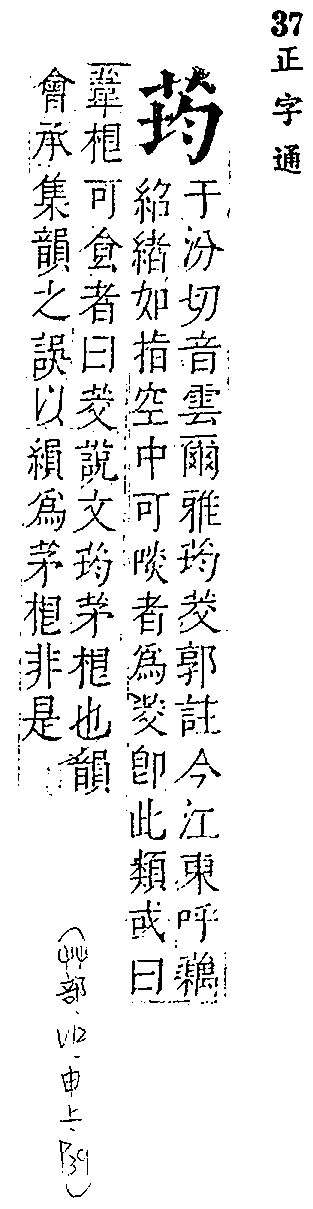 37 正字通
荺
于汾切音雲爾雅荺茭郭註今江東呼藕
紹緒如指空中可啖者為茭卽此類或曰
葦根可食者曰茭說文荺茅根也韻
會承集韻之誤以縜為茅根非是
(艸部.V12.申上.P39)